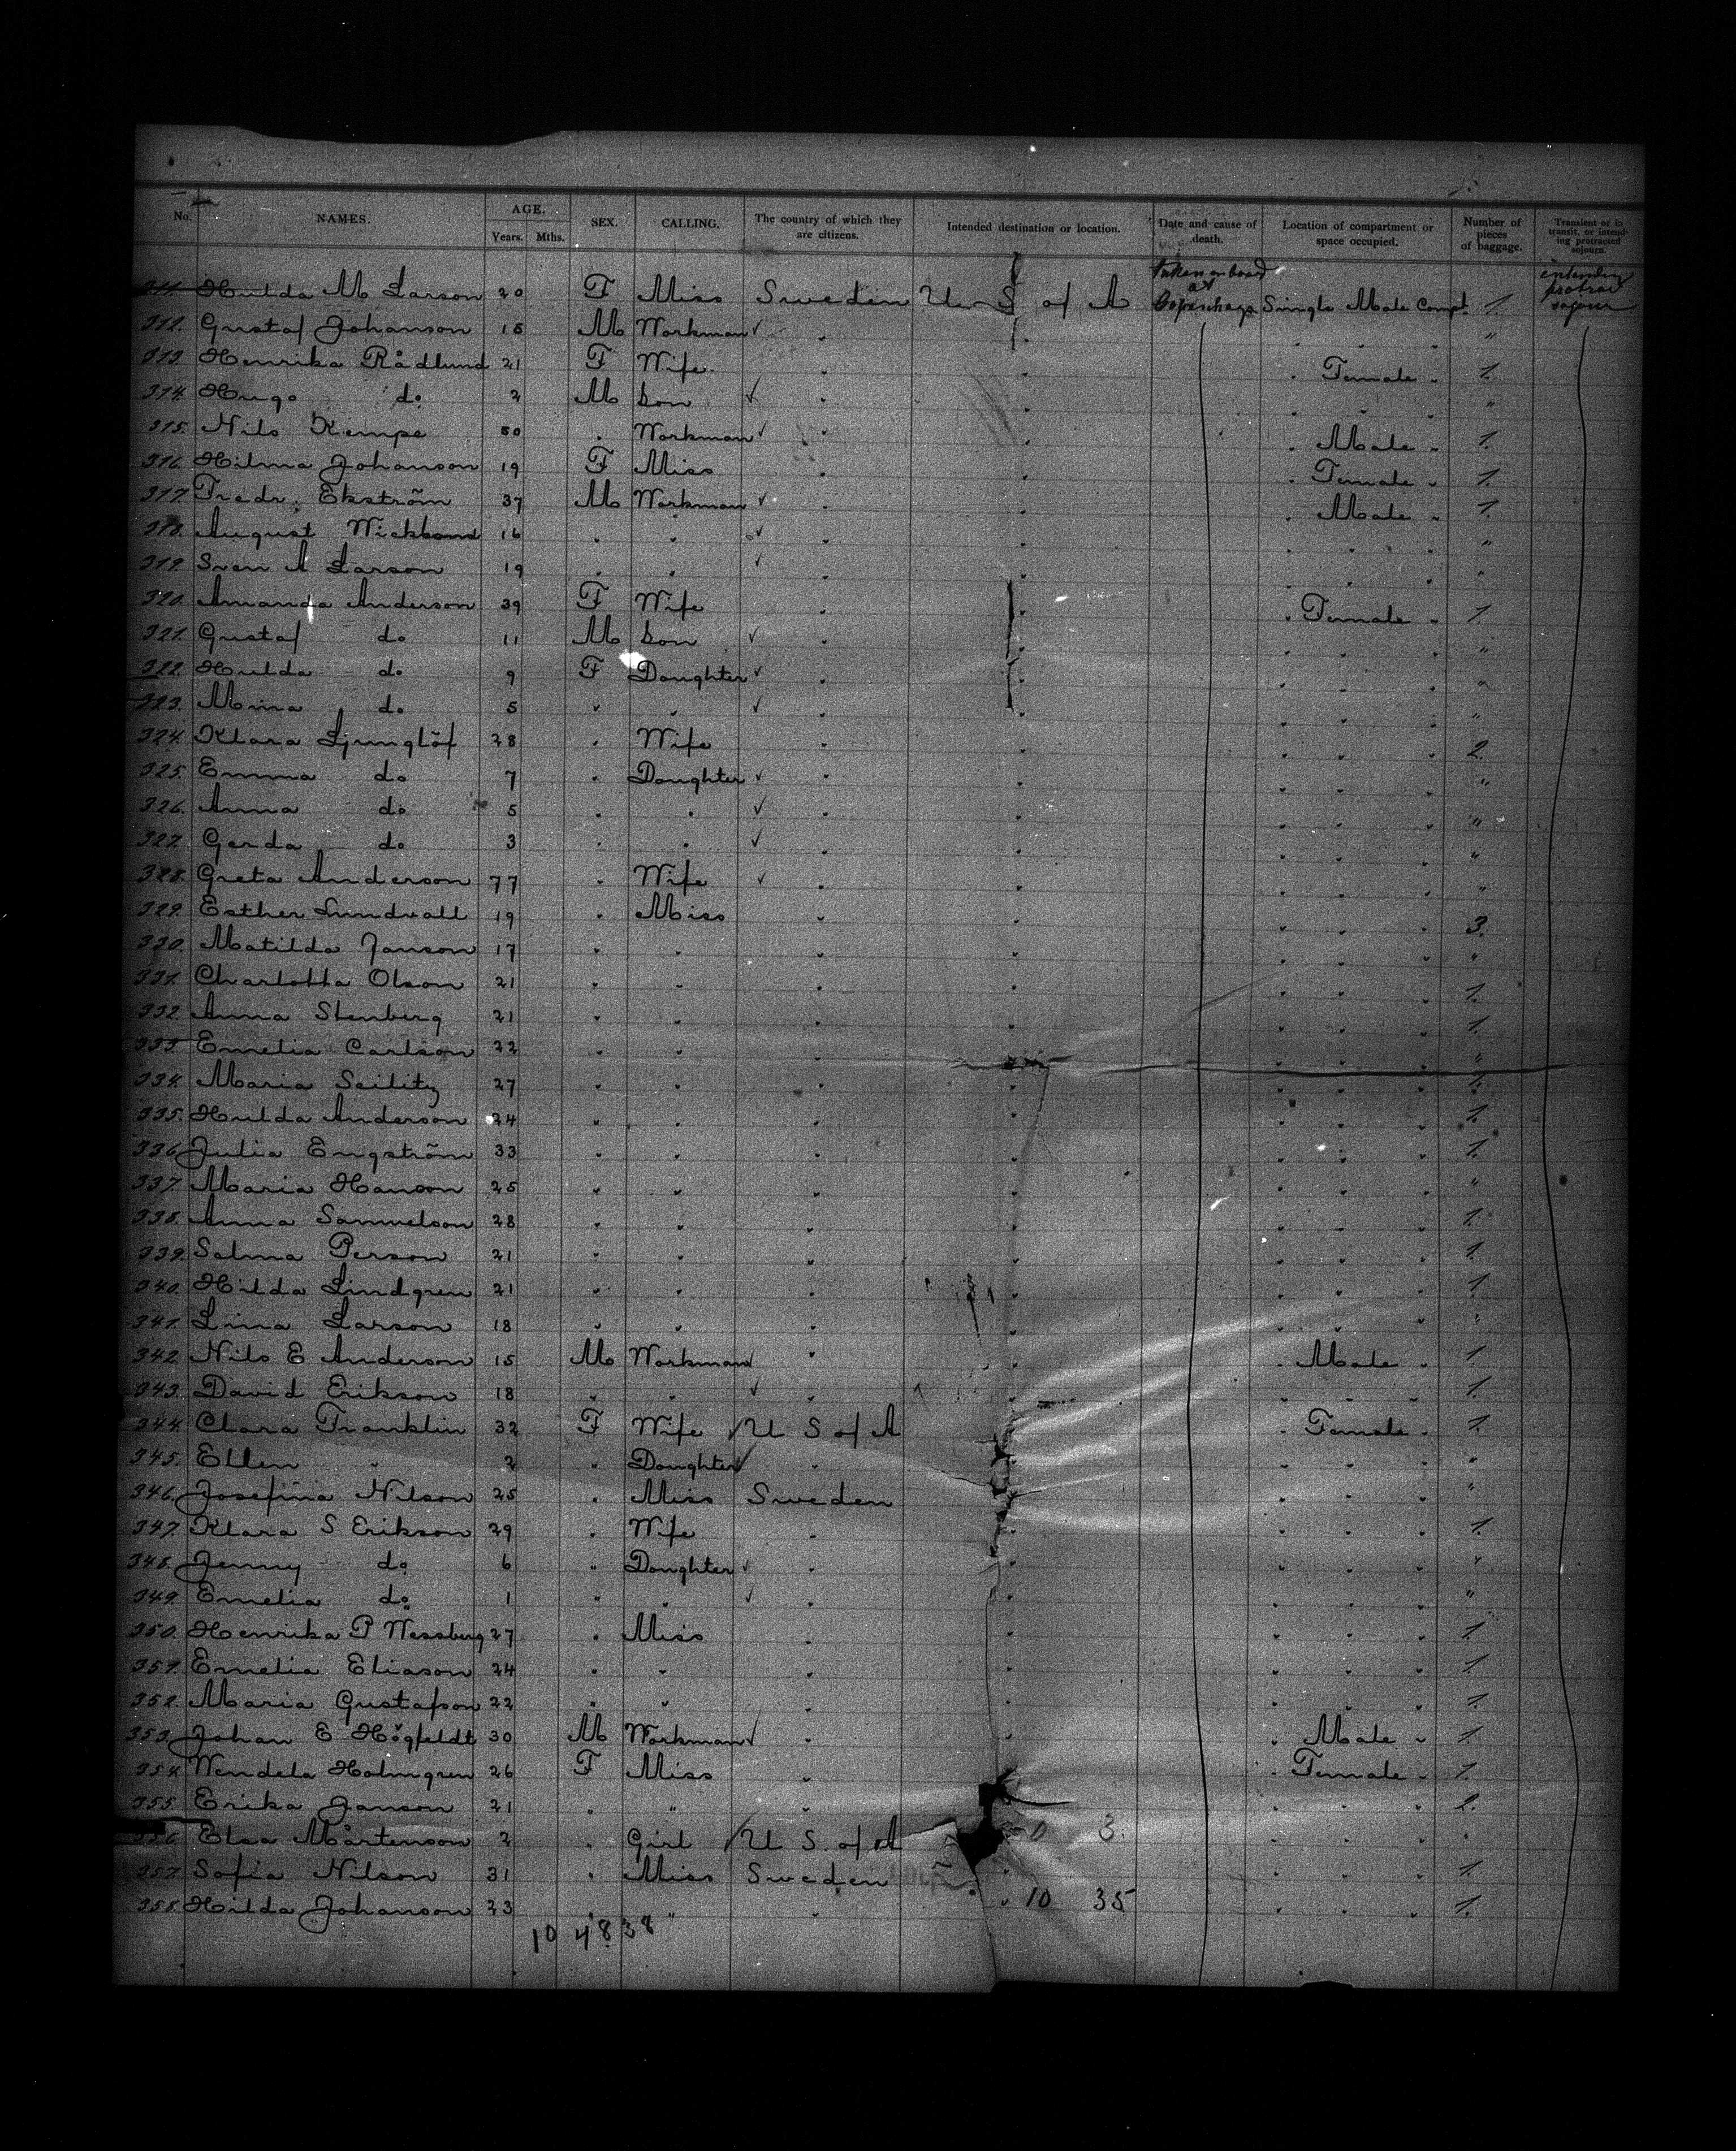 No. NAMES. AGE. Years. Mths. SEX. CALLING. The country of which they are citizens. Intended destination or location. Date and cause of death. Location of compartment or space occupied. Number of pieces of baggage. Transient or in transit, or intending protracted sojourn.
311. Hulda M Larson 20 F Miss Sweden U S of A taken on board at Single Male Compt. 1.
312. Gustaf Johanson 18 M Workman ✓ " " " " " "
313. Henrika Rådlund 21 F Wife " " " Female " 1.
314. Hugo do 2 M Son ✓ " " " " " "
315. Nils Kempe 50 " Workman ✓ " " " Male " 1.
316. Hilma Johanson 19 F Miss " " " Female " 1.
317. Fredr. Ekström 37 M Workman ✓ " " " Male " 1.
318. August 16 " " ✓ " " " " " "
319. Sven A Larson 19 " " ✓ " " " " " "
320. Amanda Anderson 39 F Wife " " " Female " 1.
321. Gustaf do 11 M Son ✓ " " " " " "
322. Hulda do 9 F Daughter ✓ " " " " " "
323. Mina do 5 " " ✓ " " " " " "
324. Klara Ljunglöf 28 " Wife " " " " " 2.
325. Emma do 7 " Daughter ✓ " " " " " "
326. Anna do 5 " " ✓ " " " " " "
327. Gerda do 3 " " ✓ " " " " " "
328. Greta Anderson 77 " Wife ✓ " " " " " "
329. Esther Lundvall 19 " Miss " " " " " 3.
330. Matilda Janson 17 " " " " " " " "
331. Charlotta Olson 21 " " " " " " " 1.
332. Anna Stenberg 21 " " " " " " " 1.
333. Emelia Carlson 22 " " " " " " " "
334. Maria Seility 27 " " " " " " " 1.
335. Hulda Anderson 24 " " " " " " " 1.
336. Julia Engström 33 " " " " " " " 1.
337. Maria Hanson 25 " " " " " " " "
338. Anna Samuelson 28 " " " " " " " 1.
339. Selma Person 21 " " " " " " " 1.
340. Hilda Lindgren 21 " " " " " " " 1
341. Lina Larson 18 " " " " " " " "
342. Nils E Anderson 15 M Workman ✓ " " " Male " 1
343. David Erikson 18 " " ✓ " " " " " 1.
344. Clara Franklin 32 F Wife ✓ U S of A " " Female " 1.
345. Ellen " 2 " Daughter ✓ " " " " " "
346. Josefina Nilson 25 " Miss Sweden " " " " "
347. Klara S Erikson 29 " Wife " " " " " 1.
348. Jenny do 6 " Daughter ✓ " " " " " "
349. Emelia do 1 " " ✓ " " " " " "
350. Henrika P Wessberg 27 " Miss " " " " " 1.
351. Emelia Eliason 24 " " " " " " " 1.
352. Maria Gustafson 22 " " " " " " " 1.
353. Johan E Högfeldt 30 M Workman ✓ " " " Male " 1.
354. Wendela Holmgren 26 F Miss " " " Female " 1.
355. Erika Janson 21 " " " " " " 2.
356. Elsa Mårtenson 2 " Girl ✓ U S. of A 0 3. " " " "
357. Sofia Nilson 31 " Miss Sweden " " " " 1.
358. Hilda Johanson 23 " " " " 10 35 " " " 1.
10 48 38